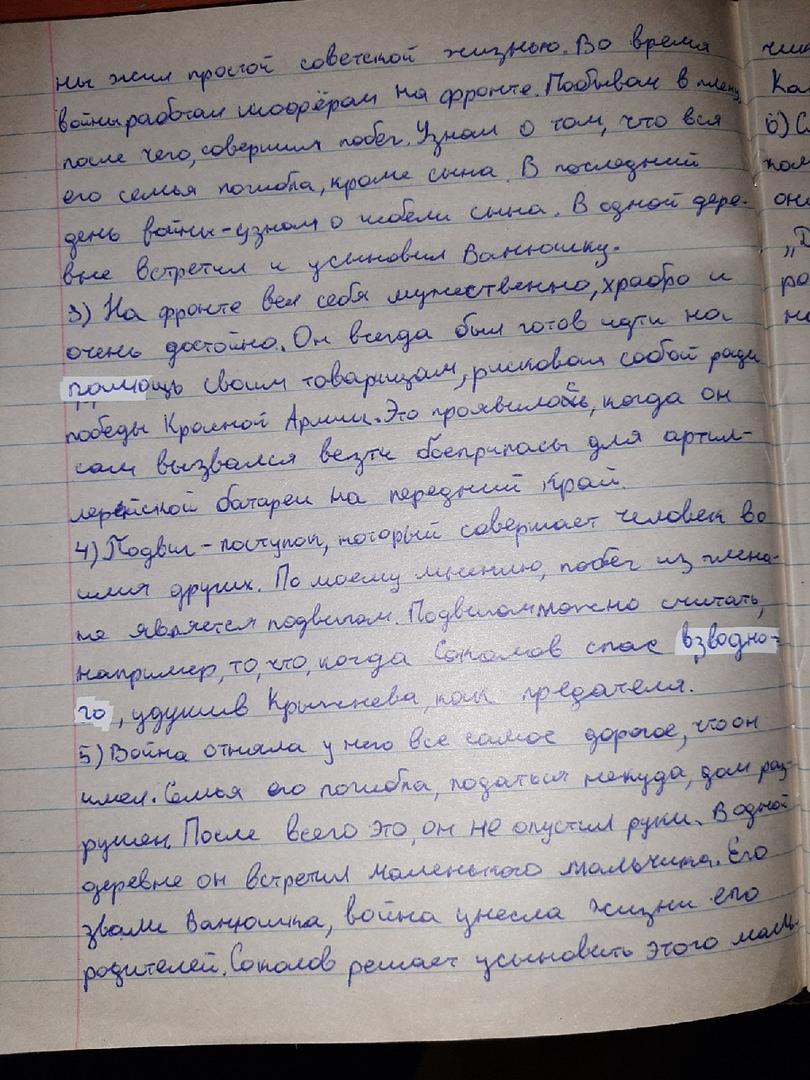 ны жил простой советской жизнью. Во время
войны работал шофёром на фронте. Побывал в плену,
после чего, совершил побег. Узнал о том, что вся
его семья погибла, кроме сына. В последний
день войны - узнал о гибели сына. В одной дере-
вне встретил и усыновил Ванюшку.
3) На фронте вел себя мужественно, храбро и
очень достойно. Он всегда был готов идти на
помощь своим товарищам, рисковал собой ради
победы Красной Армии. Это проявилось, когда он
сам вызвался везти боеприпасы для артил-
лерейской батареи на передний край.
4) Подвиг - поступок, который совершает человек во
имя других. По моему мнению, побег из плена-
не является подвигом. Подвигом можно считать,
например, то, что, когда Соколов спас взводно-
го, удушив Крыжнева, как предателя.
5) Война отняла у него все самое дорогое, что он
имел. Семья его погибла, податься некуда, дом раз-
рушен. После всего это, он не опустил руки. В одной
деревне он встретил маленького мальчика. Его
звали Ванюшка, война унесла жизни его
родителей. Соколов решает усыновить этого маль-
чи
Ка
6) С
он
"Д
ра